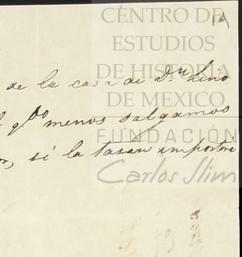 14
CENTRO DE
ESTUDIOS
DE HISTORIA
DE MEXICO
FUNDACIÓN
Carlos Slim
de la casa de Dn Lino
qdo menos salgamos
si la tasan importe